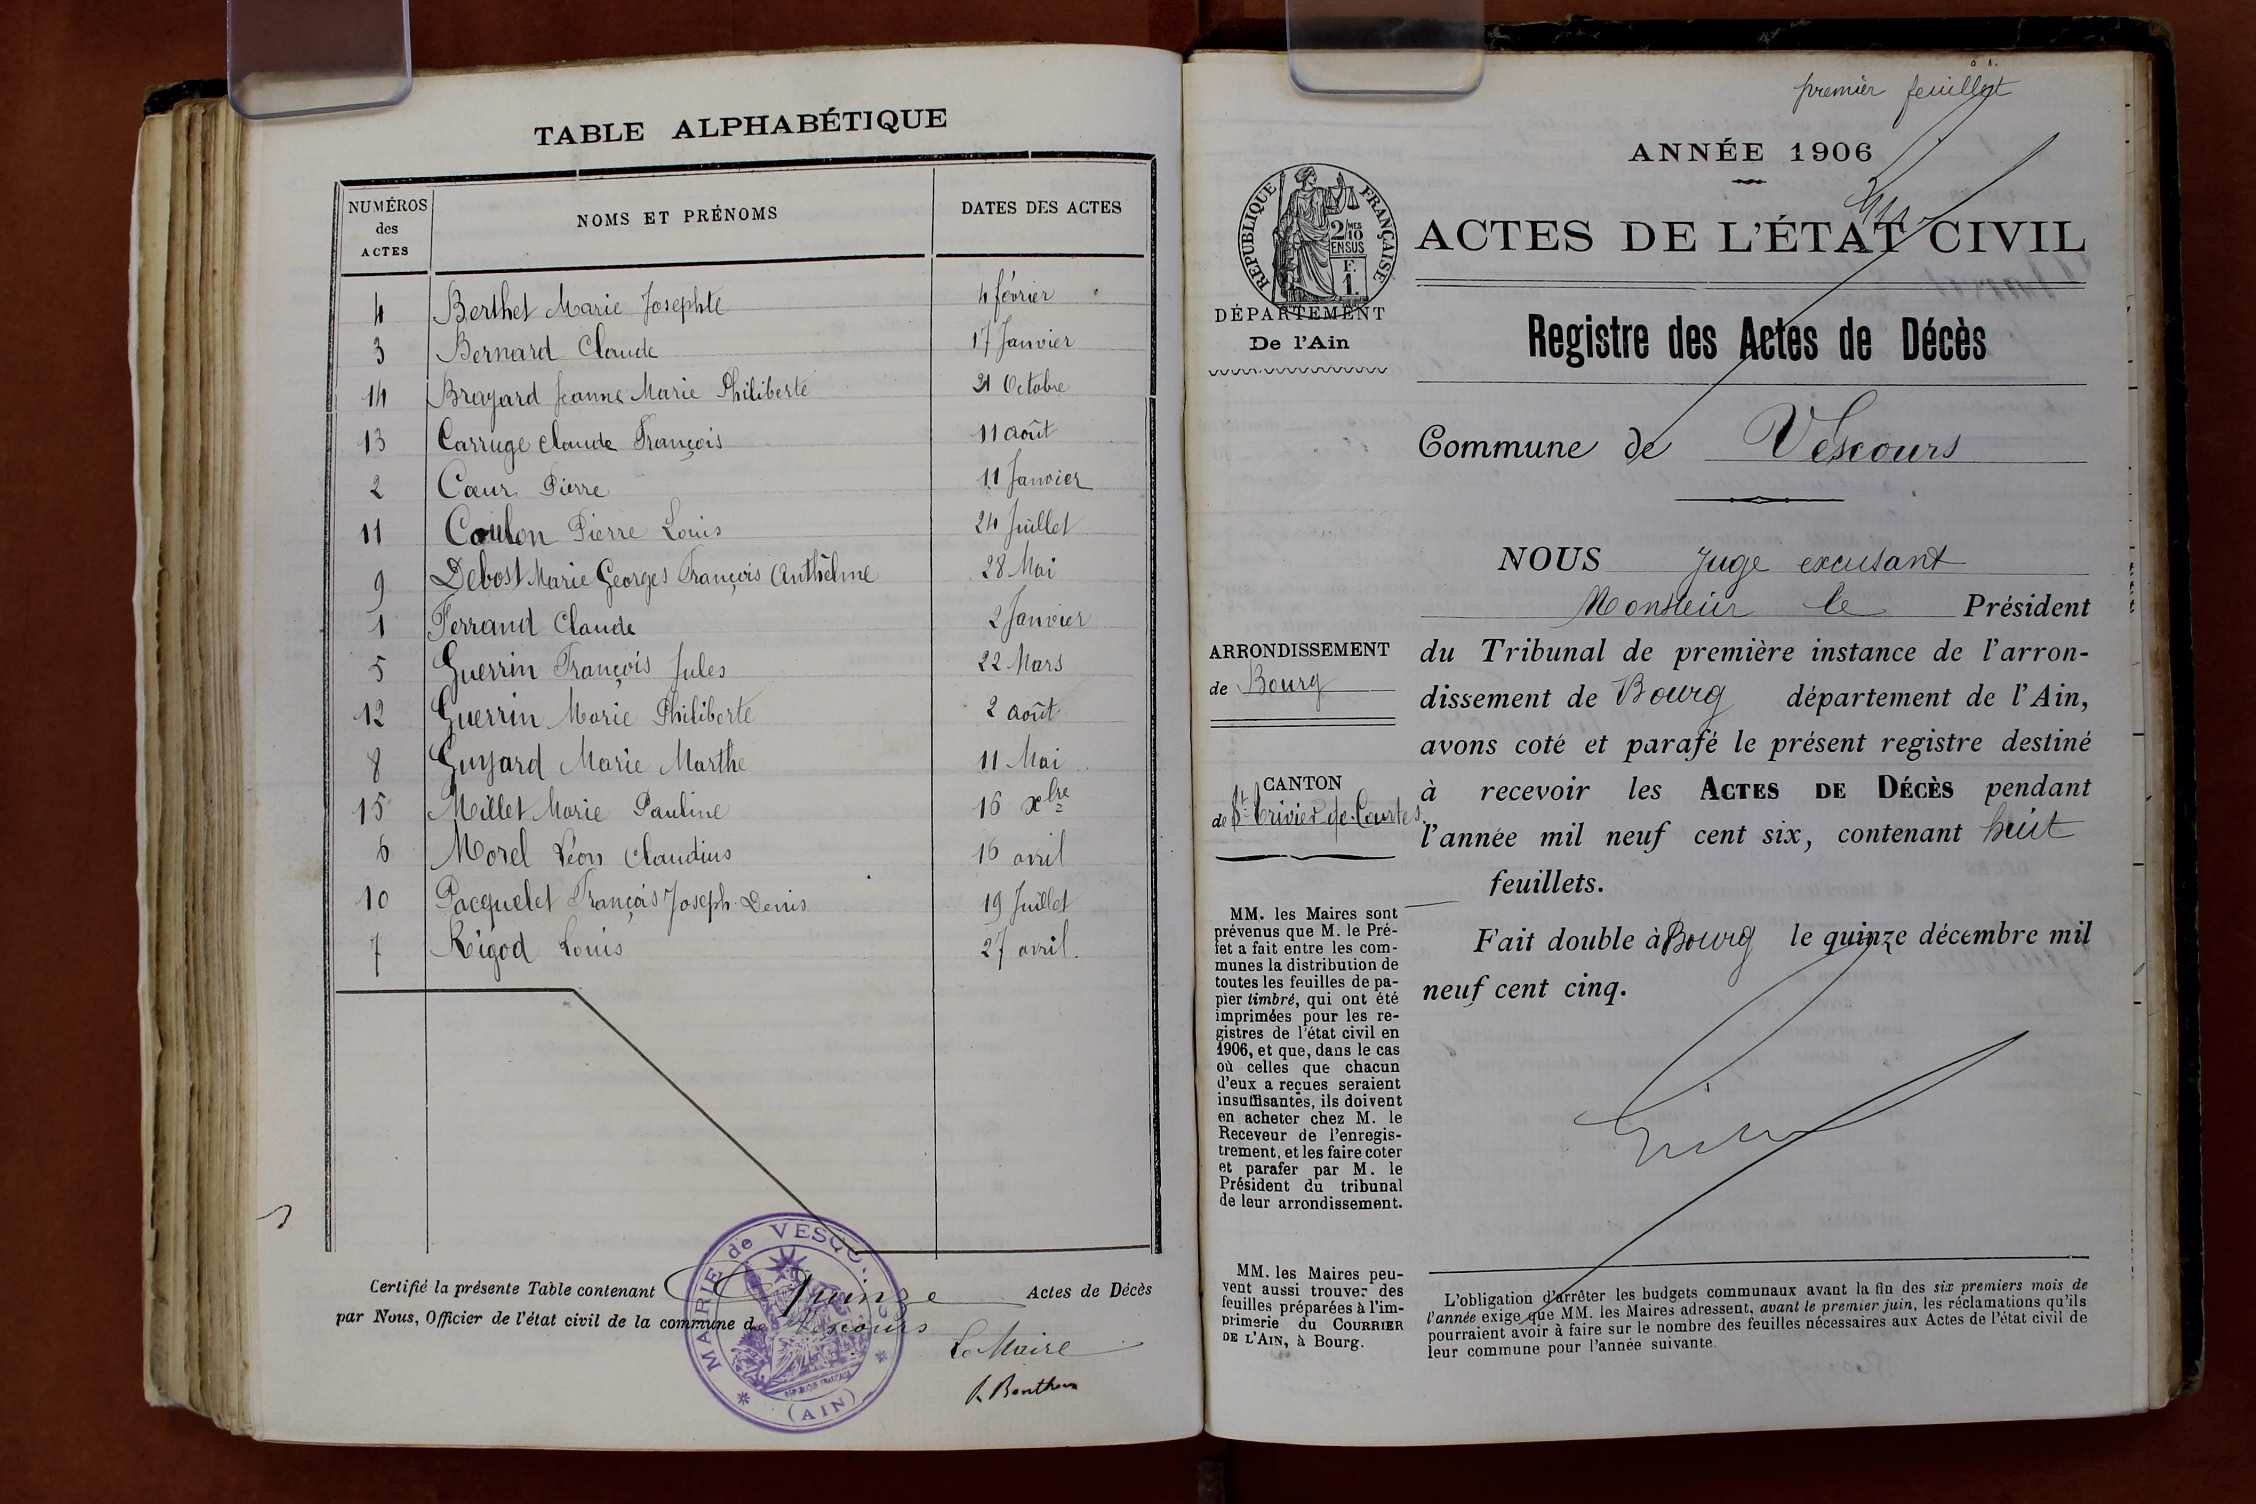 TABLE ALPHABÉTIQUE
NUMÉROS des ACTES NOMS ET PRÉNOMS DATES DES ACTES
4 Berthet Marie Josephte 4 février
3 Bernard Claude 17 Janvier
14 Brayard Jeanne Marie Philiberte 21 Octobre
13 Carruge Claude François 11 août
2 Cœur Pierre 11 Janvier
11 Coulon Pierre Louis 24 Juillet
9 Debost Marie Georges François Anthelme 28 Mai
1 Ferrand Claude 2 Janvier
5 Guerrin François Jules 22 Mars
12 Guerrin Marie Philiberte 2 août
8 Guyard Marie Marthe 11 Mai
15 Millet Marie Pauline 16 Xbre
6 Morel Léon Claudius 16 avril
10 Pacquelet François Joseph Denis 19 Juillet
7 Rigod Louis 27 avril.
Certifié la présente Table contenant Quinze Actes de Décès
par Nous, Officier de l'état civil de la commune de Vescours
Le Maire
MAIRIE de VESCOURS
(AIN)
premier feuillet
ANNÉE 1906
ACTES DE L'ÉTAT CIVIL
RÉPUBLIQUE FRANÇAISE
2/10 MES
EN SUS
F.
1.
DÉPARTEMENT
De l'Ain
Registre des Actes de Décès
Commune de Vescours
NOUS Juge excusant
Monsieur le Président
du Tribunal de première instance de l'arron-
dissement de Bourg département de l'Ain,
avons coté et parafé le présent registre destiné
à recevoir les ACTES DE DÉCÈS pendant
l'année mil neuf cent six, contenant huit
feuillets.
Fait double à Bourg le quinze décembre mil
neuf cent cinq.
ARRONDISSEMENT
de Bourg
CANTON
de St Trivier de Courtes
MM. les Maires sont
prévenus que M. le Pré-
fet a fait entre les com-
munes la distribution de
toutes les feuilles de pa-
pier timbré, qui ont été
imprimées pour les re-
gistres de l'état civil en
1906, et que, dans le cas
où celles que chacun
d'eux a reçues seraient
insuffisantes, ils doivent
en acheter chez M. le
Receveur de l'enregis-
trement, et les faire coter
et parafer par M. le
Président du tribunal
de leur arrondissement.
MM. les Maires peu-
vent aussi trouver des
feuilles préparées à l'im-
primerie du COURRIER
DE L'AIN, à Bourg.
L'obligation d'arrêter les budgets communaux avant la fin des six premiers mois de
l'année exige que MM. les Maires adressent, avant le premier juin, les réclamations qu'ils
pourraient avoir à faire sur le nombre des feuilles nécessaires aux Actes de l'état civil de
leur commune pour l'année suivante.